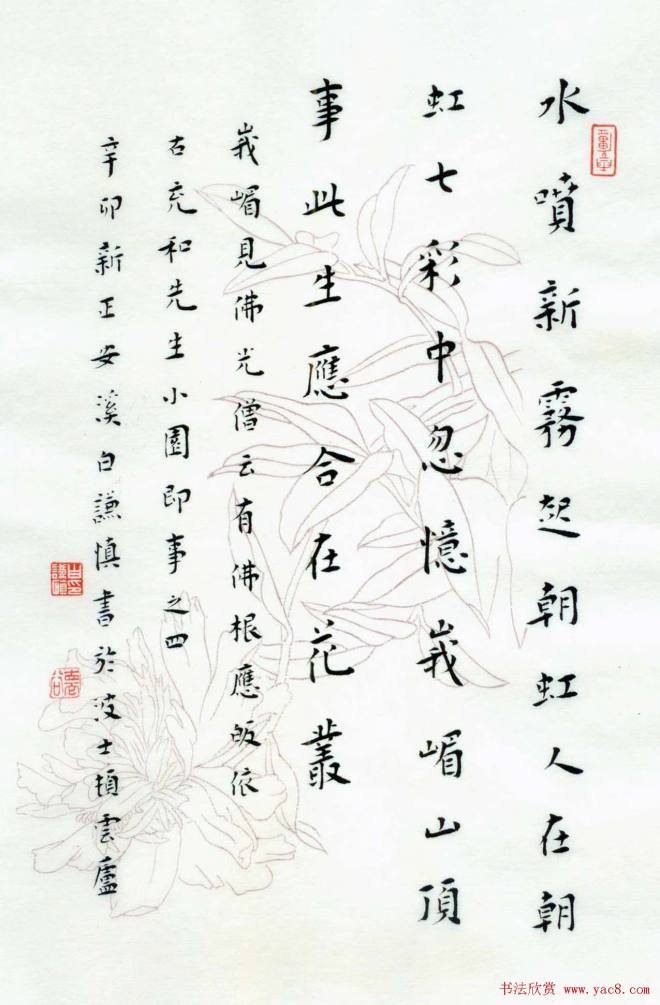 水噴新霧起朝虹人在朝
虹七彩中忽憶峩嵋山頂
事此生應合在花叢
峩嵋見佛光僧云有佛根應皈依
右充和先生小園即事之四
辛卯新正安溪白謙慎書於波士頓雲廬
书法欣赏 www.yac8.com